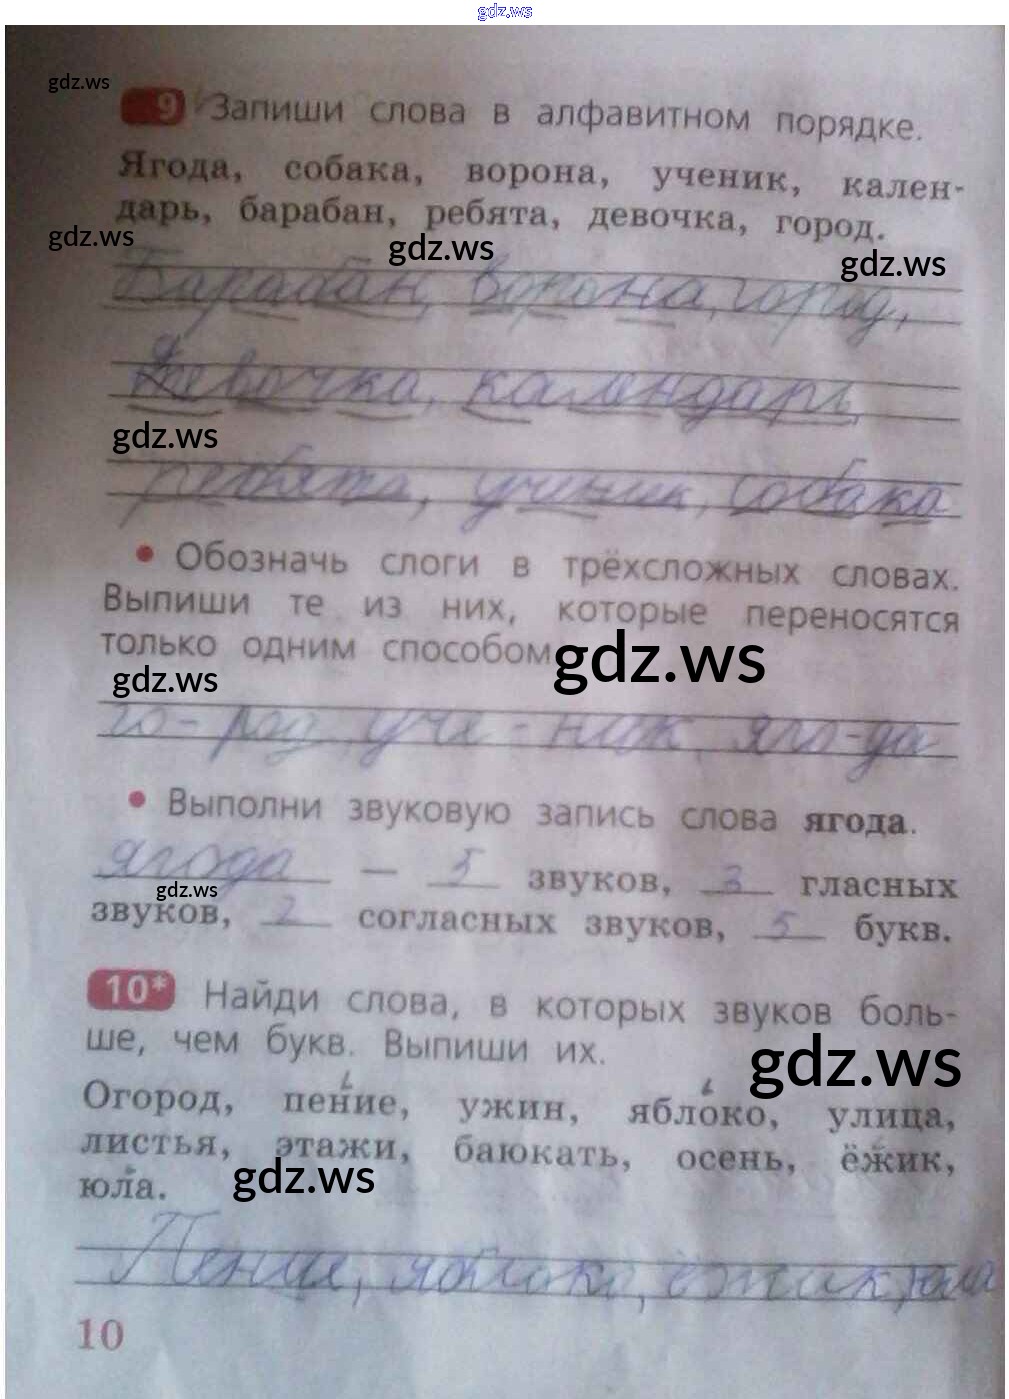 gdz.ws
gdz.ws
9 Запиши слова в алфавитном порядке.
Ягода, собака, ворона, ученик, кален-
дарь, барабан, ребята, девочка, город.
gdz.ws gdz.ws gdz.ws
Барабан, ворона, город,
девочка, календарь,
gdz.ws
ребята, ученик, собака
• Обозначь слоги в трёхсложных словах.
Выпиши те из них, которые переносятся
только одним способом
gdz.ws
gdz.ws
го-род, уче-ник, яго-да
• Выполни звуковую запись слова ягода.
ягода — 5 звуков, 3 гласных
gdz.ws
звуков, 2 согласных звуков, 5 букв.
10* Найди слова, в которых звуков боль-
ше, чем букв. Выпиши их.
gdz.ws
Огород, пение, ужин, яблоко, улица,
листья, этажи, баюкать, осень, ёжик,
gdz.ws
юла.
Пение, яблоко, ёжик, юла
10